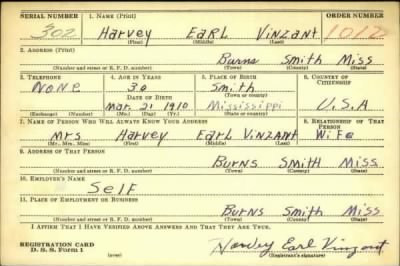 SERIAL NUMBER 1. NAME (Print) ORDER NUMBER
302 Harvey Earl Vinzant 1012
(First) (Middle) (Last)
2. ADDRESS (Print)
Burns Smith Miss
(Number and street or R. F. D. number) (Town) (County) (State)
3. TELEPHONE 4. AGE IN YEARS 5. PLACE OF BIRTH 6. COUNTRY OF CITIZENSHIP
None 30 Smith
DATE OF BIRTH (Town or county)
Mar. 21 1910 Mississippi U.S.A
(Exchange) (Number) (Mo.) (Day) (Yr.) (State or country)
7. NAME OF PERSON WHO WILL ALWAYS KNOW YOUR ADDRESS 8. RELATIONSHIP OF THAT PERSON
Mrs Harvey Earl Vinzant Wife
(Mr., Mrs., Miss) (First) (Middle) (Last)
9. ADDRESS OF THAT PERSON
Burns Smith Miss.
(Number and street or R. F. D. number) (Town) (County) (State)
10. EMPLOYER'S NAME
Self
11. PLACE OF EMPLOYMENT OR BUSINESS
Burns Smith Miss.
(Number and street or R. F. D. number) (Town) (County) (State)
I AFFIRM THAT I HAVE VERIFIED ABOVE ANSWERS AND THAT THEY ARE TRUE.
REGISTRATION CARD
D. S. S. Form 1 (over) Harvey Earl Vinzant
(Registrant's signature)